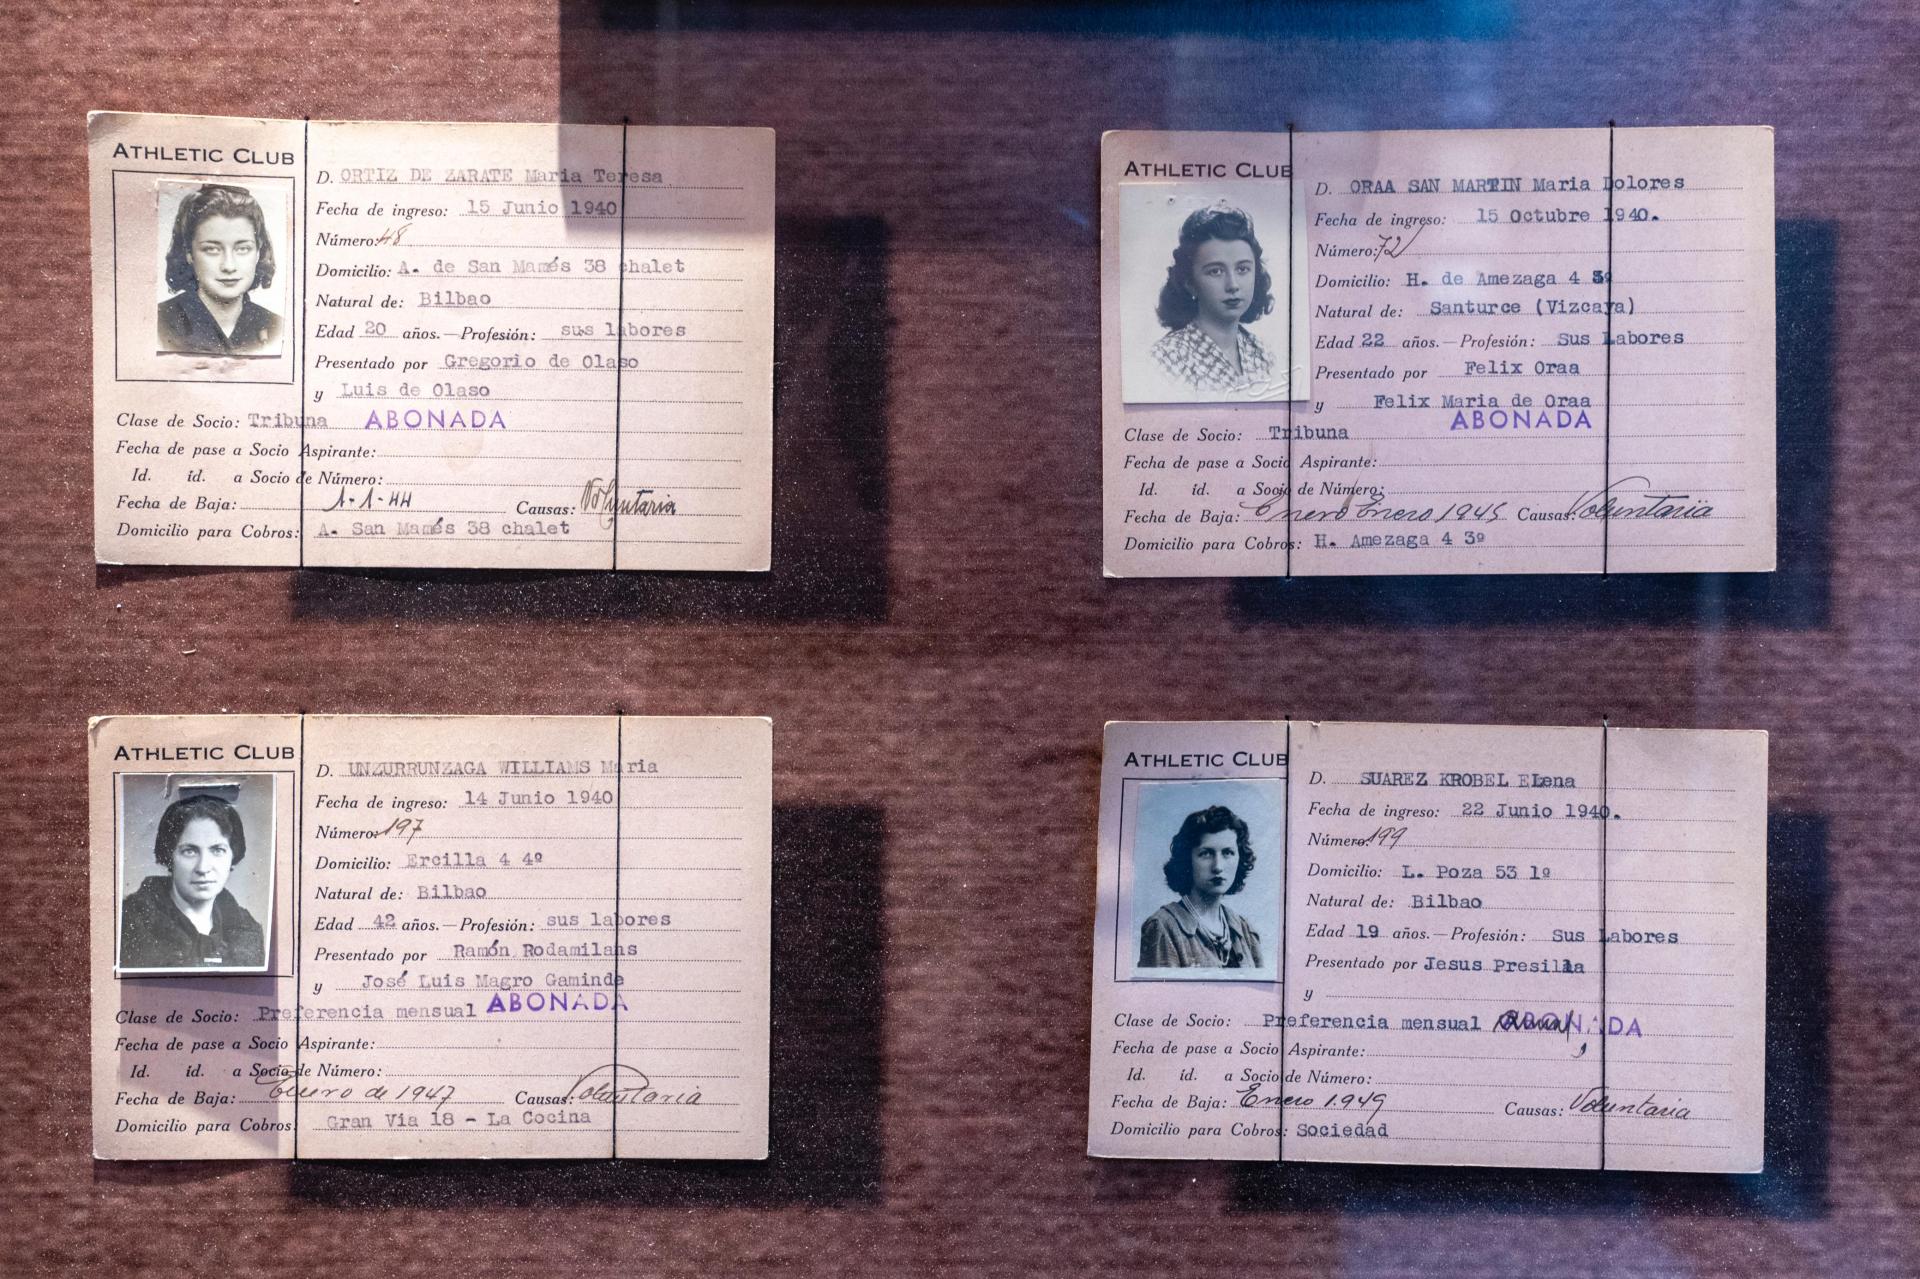 ATHLETIC CLUB
D. ORTIZ DE ZARATE Maria Teresa
Fecha de ingreso: 15 Junio 1940
Número: 48
Domicilio: A. de San Mamés 38 chalet
Natural de: Bilbao
Edad 20 años.—Profesión: sus labores
Presentado por Gregorio de Olaso
y Luis de Olaso
Clase de Socio: Tribuna ABONADA
Fecha de pase a Socio Aspirante:
Id. id. a Socio de Número:
Fecha de Baja: 1-1-44 Causas: Voluntaria
Domicilio para Cobros: A. San Mamés 38 chalet
ATHLETIC CLUB
D. ORAA SAN MARTIN Maria Dolores
Fecha de ingreso: 15 Octubre 1940.
Número: 72
Domicilio: H. de Amezaga 4 3º
Natural de: Santurce (Vizcaya)
Edad 22 años.—Profesión: Sus Labores
Presentado por Felix Oraa
y Felix Maria de Oraa
ABONADA
Clase de Socio: Tribuna
Fecha de pase a Socio Aspirante:
Id. id. a Socio de Número:
Fecha de Baja: Enero Enero 1945 Causas: Voluntaria
Domicilio para Cobros: H. Amezaga 4 3º
ATHLETIC CLUB
D. UNZURRUNZAGA WILLIAMS Maria
Fecha de ingreso: 14 Junio 1940
Número: 197
Domicilio: Ercilla 4 4º
Natural de: Bilbao
Edad 42 años.—Profesión: sus labores
Presentado por Ramón Rodamilans
y José Luis Magro Gaminde
Clase de Socio: Preferencia mensual ABONADA
Fecha de pase a Socio Aspirante:
Id. id. a Socio de Número:
Fecha de Baja: Enero de 1947 Causas: Voluntaria
Domicilio para Cobros: Gran Via 18 - La Cocina
ATHLETIC CLUB
D. SUAREZ KROBEL ELena
Fecha de ingreso: 22 Junio 1940.
Número: 199
Domicilio: L. Poza 53 1º
Natural de: Bilbao
Edad 19 años.—Profesión: Sus Labores
Presentado por Jesus Presilla
y
Clase de Socio: Preferencia mensual ABONADA
Fecha de pase a Socio Aspirante:
Id. id. a Socio de Número:
Fecha de Baja: Enero 1.949 Causas: Voluntaria
Domicilio para Cobros: Sociedad